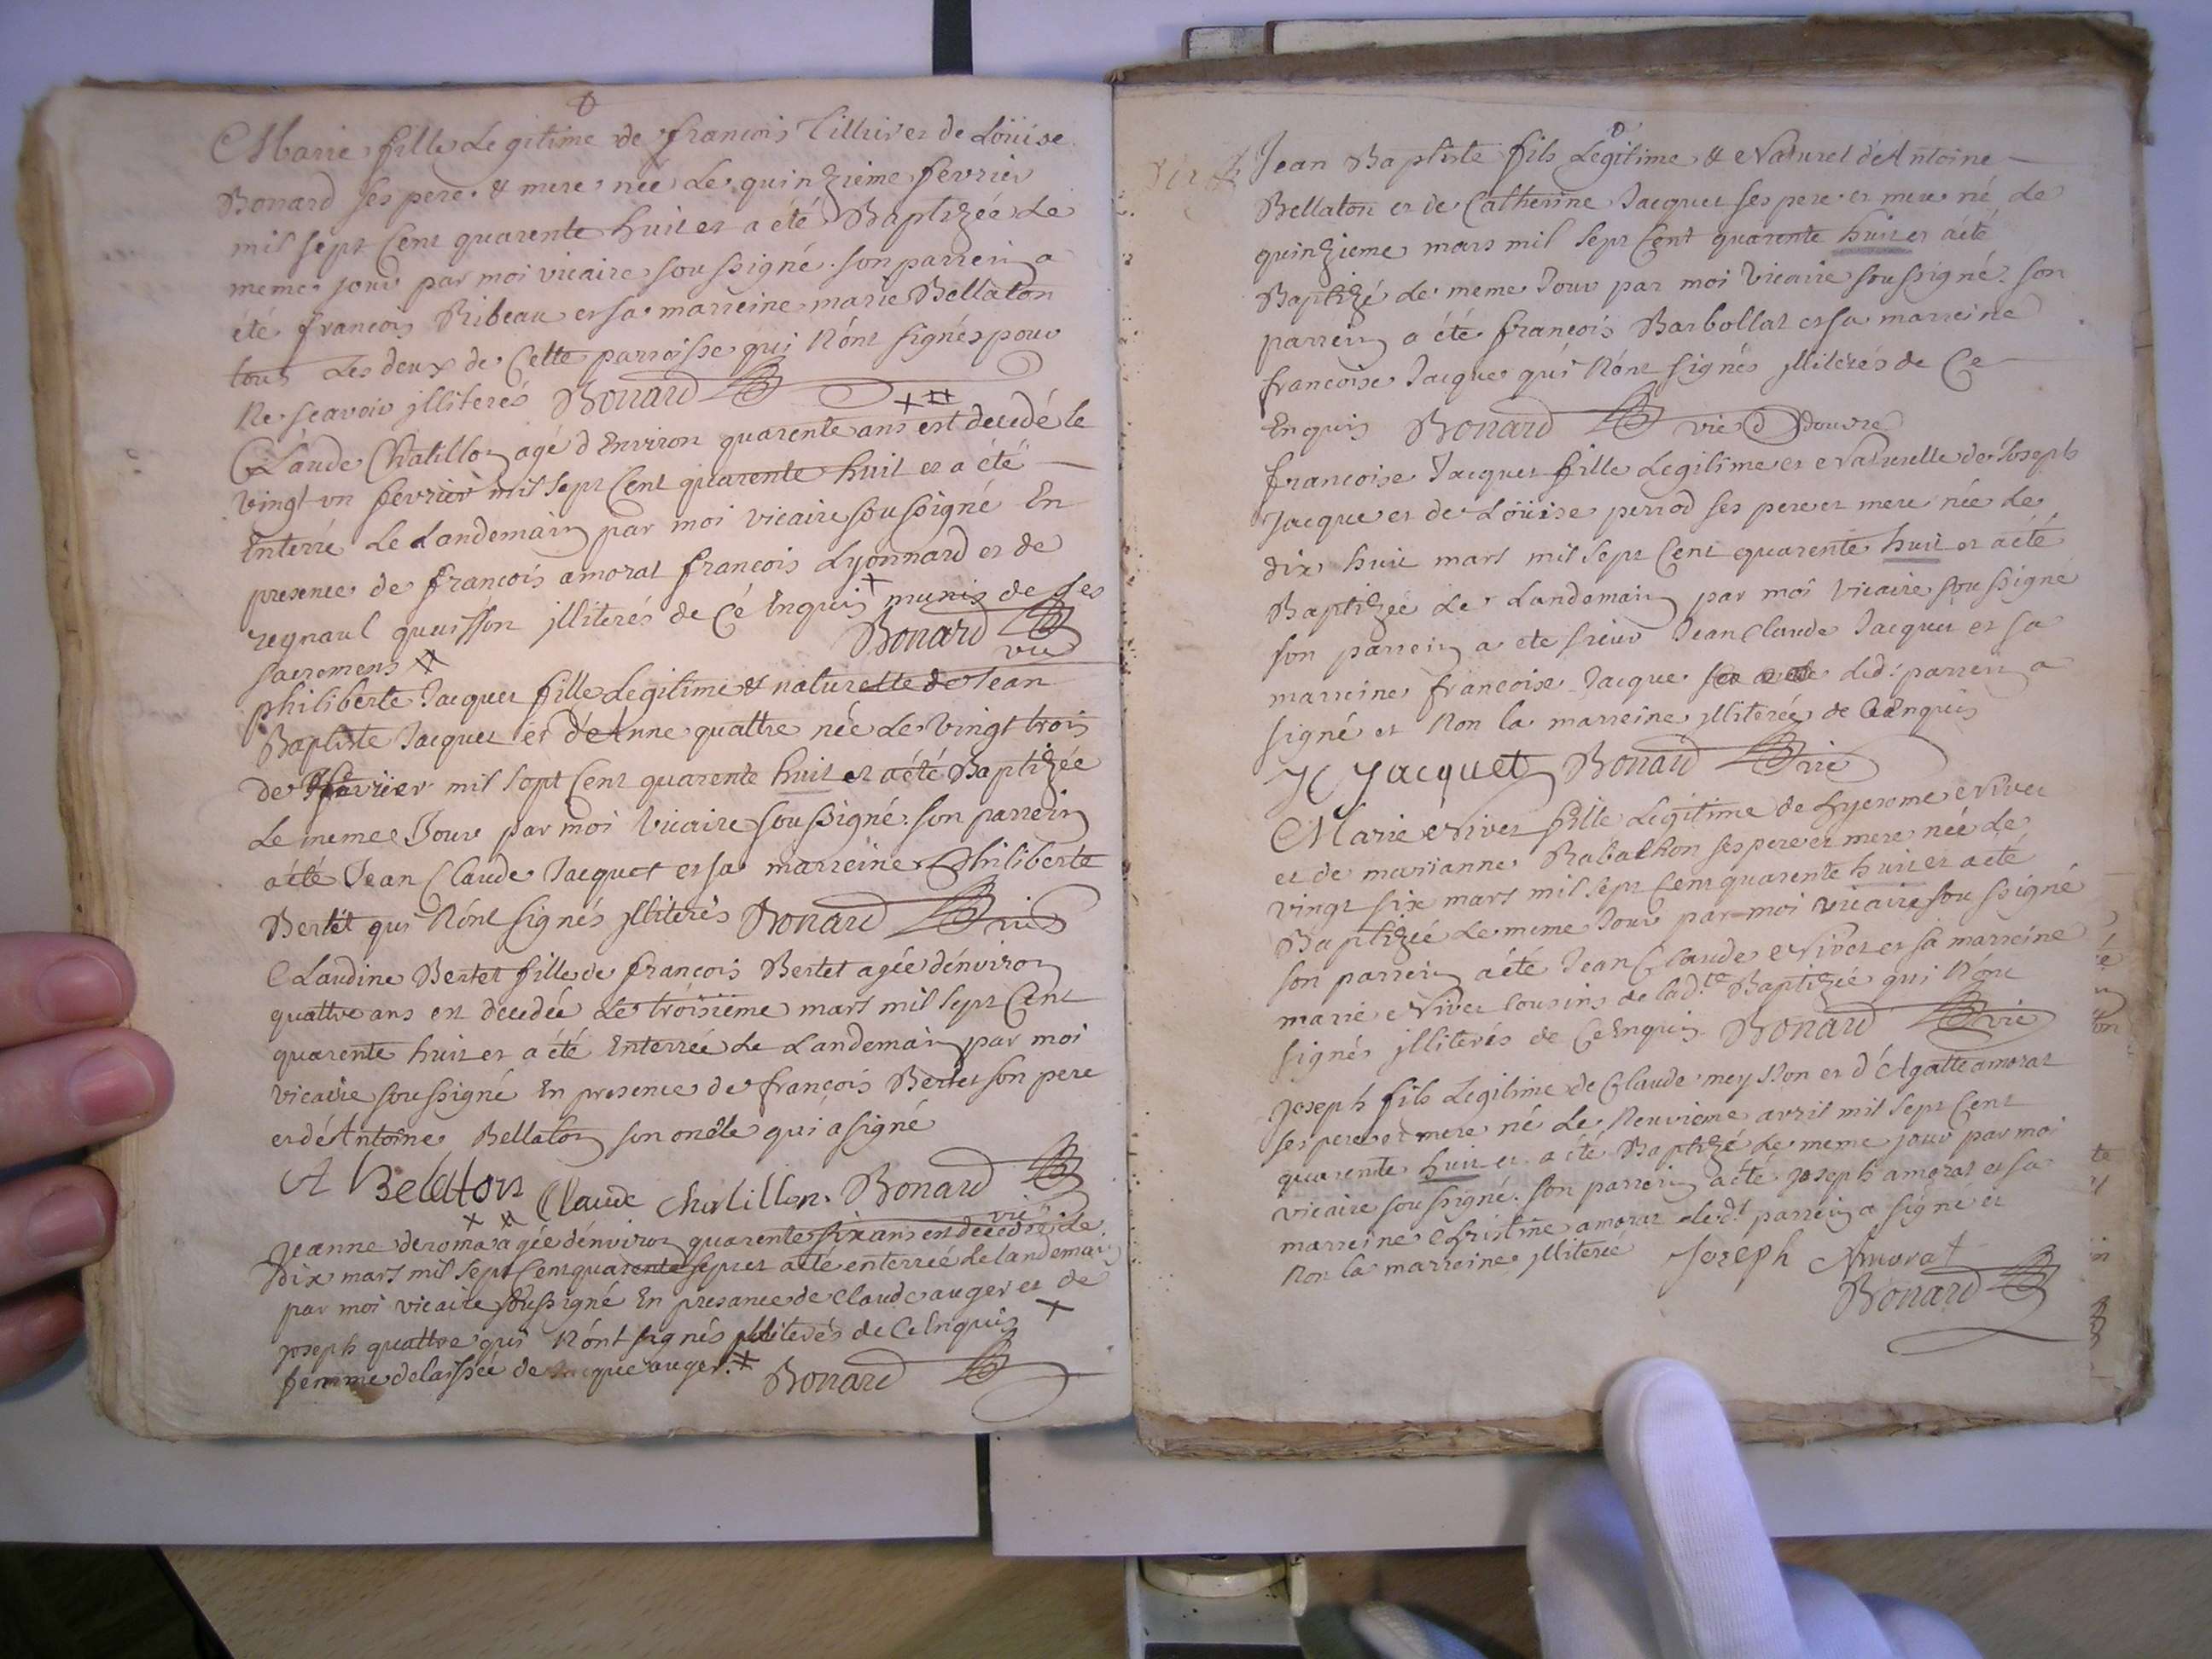 Marie fille Legitime de françois Tillivier de Löüise
Bonard ses pere & mere née Le quinzieme fevrier
mil sept Cent quarente huit et a été Baptizée Le
meme jour par moi vicaire soussigné. son parrein a
été françois Ribeau et sa marreine marie Bellaton
tous Les deux de Cette parroisse qui N'ont signés pour
Ne Sçavoir jlliterés Bonard
Claude Chatillon agé d'Environ quarente ans ++ est decedé le
vingt un fevrier mil sept Cent quarente huit et a été
Enterré Le Landemain par moi vicaire soussigné En
presence de françois amorat françois Lyonnard et de
regnaul queisson jlliterés de Cé Enquis + munis de ses
sacremens ++ Bonard vic
philiberte Jacquet fille Legitime & naturelle de Jean
Baptiste Jacquet et d'Anne quattre née Le vingt trois
de fevrier mil sept Cent quarente huit et a été Baptizée
Le meme Jour par moi Vicaire soussigné. son parrein
a été Jean Claude Jacquet et sa marreine Philiberte
Bertet qui N'ont signés jlliterés Bonard vic
Claudine Bertet fille de françois Bertet agée d'environ
quattre ans est decedée Le troisieme mars mil sept Cent
quarente huit et a été Enterrée Le Landemain par moi
vicaire soussigné En presence de françois Bertet son pere
et d'Antoine Bellaton son oncle qui a signé
A Belaton Claude Chatillon. Bonard vic
Jeanne deroma + ++ agée d'environ quarente six ans est decedée le
dix mars mil sept Cent quarente sept et a été enterrée le landemain
par moi vicaire soussigné En presance de claude auger et de
joseph quattre qui N'ont signés jlliterés de Ce Enquis +
femme delaissée de Jacque auger. ++ Bonard
Jean Baptiste fils Legitime & Naturel d'Antoine
Bellaton et de Catherine Jacquet ses pere et mere né Le
quinzieme mars mil sept Cent quarente huit et a été
Baptizé Le meme Jour par moi Vicaire soussigné. son
parrein a été françois Barbollat et sa marreine
françoise Jacque qui N'ont signés jlliterés de Ce
Enquis Bonard vic D Douvre
françoise Jacquet fille Legitime et Naturelle de Joseph
Jacque et de Löüise perrod ses pere et mere née Le
dix huit mars mil sept Cent quarente huit et a été
Baptizée Le Landemain par moi Vicaire soussigné
son parrein a ete sieur Jean Claude Jacquet et sa
marreine françoise Jacque led: parrein a
signé et Non la marreine jlliterée de Ce Enquis
JC Jacquet Bonard vic
Marie Nivet fille Legitime de hyerome Nivet
et de marianne Rabathon ses pere et mere née Le
vingt six mars mil sept Cent quarente huit et a été
Baptizée Le meme Jour par moi vicaire soussigné
son parrein a été Jean Claude Nivet et sa marreine
marie Nivet cousins de lad.te Baptizée qui N'ont
signés jlliterés de Ce Enquis Bonard vic
Joseph fils Legitime de Claude meyNon et d'Agatte amorat
ses pere et mere né Le Neuvieme avril mil sept Cent
quarente huit et a été Baptizé Le meme jour par moi
vicaire soussigné. son parrein a été joseph amorat et sa
marreine Christine amorat led.t parrein a signé et
Non la marreine jlliterée Joseph Amorat
Bonard